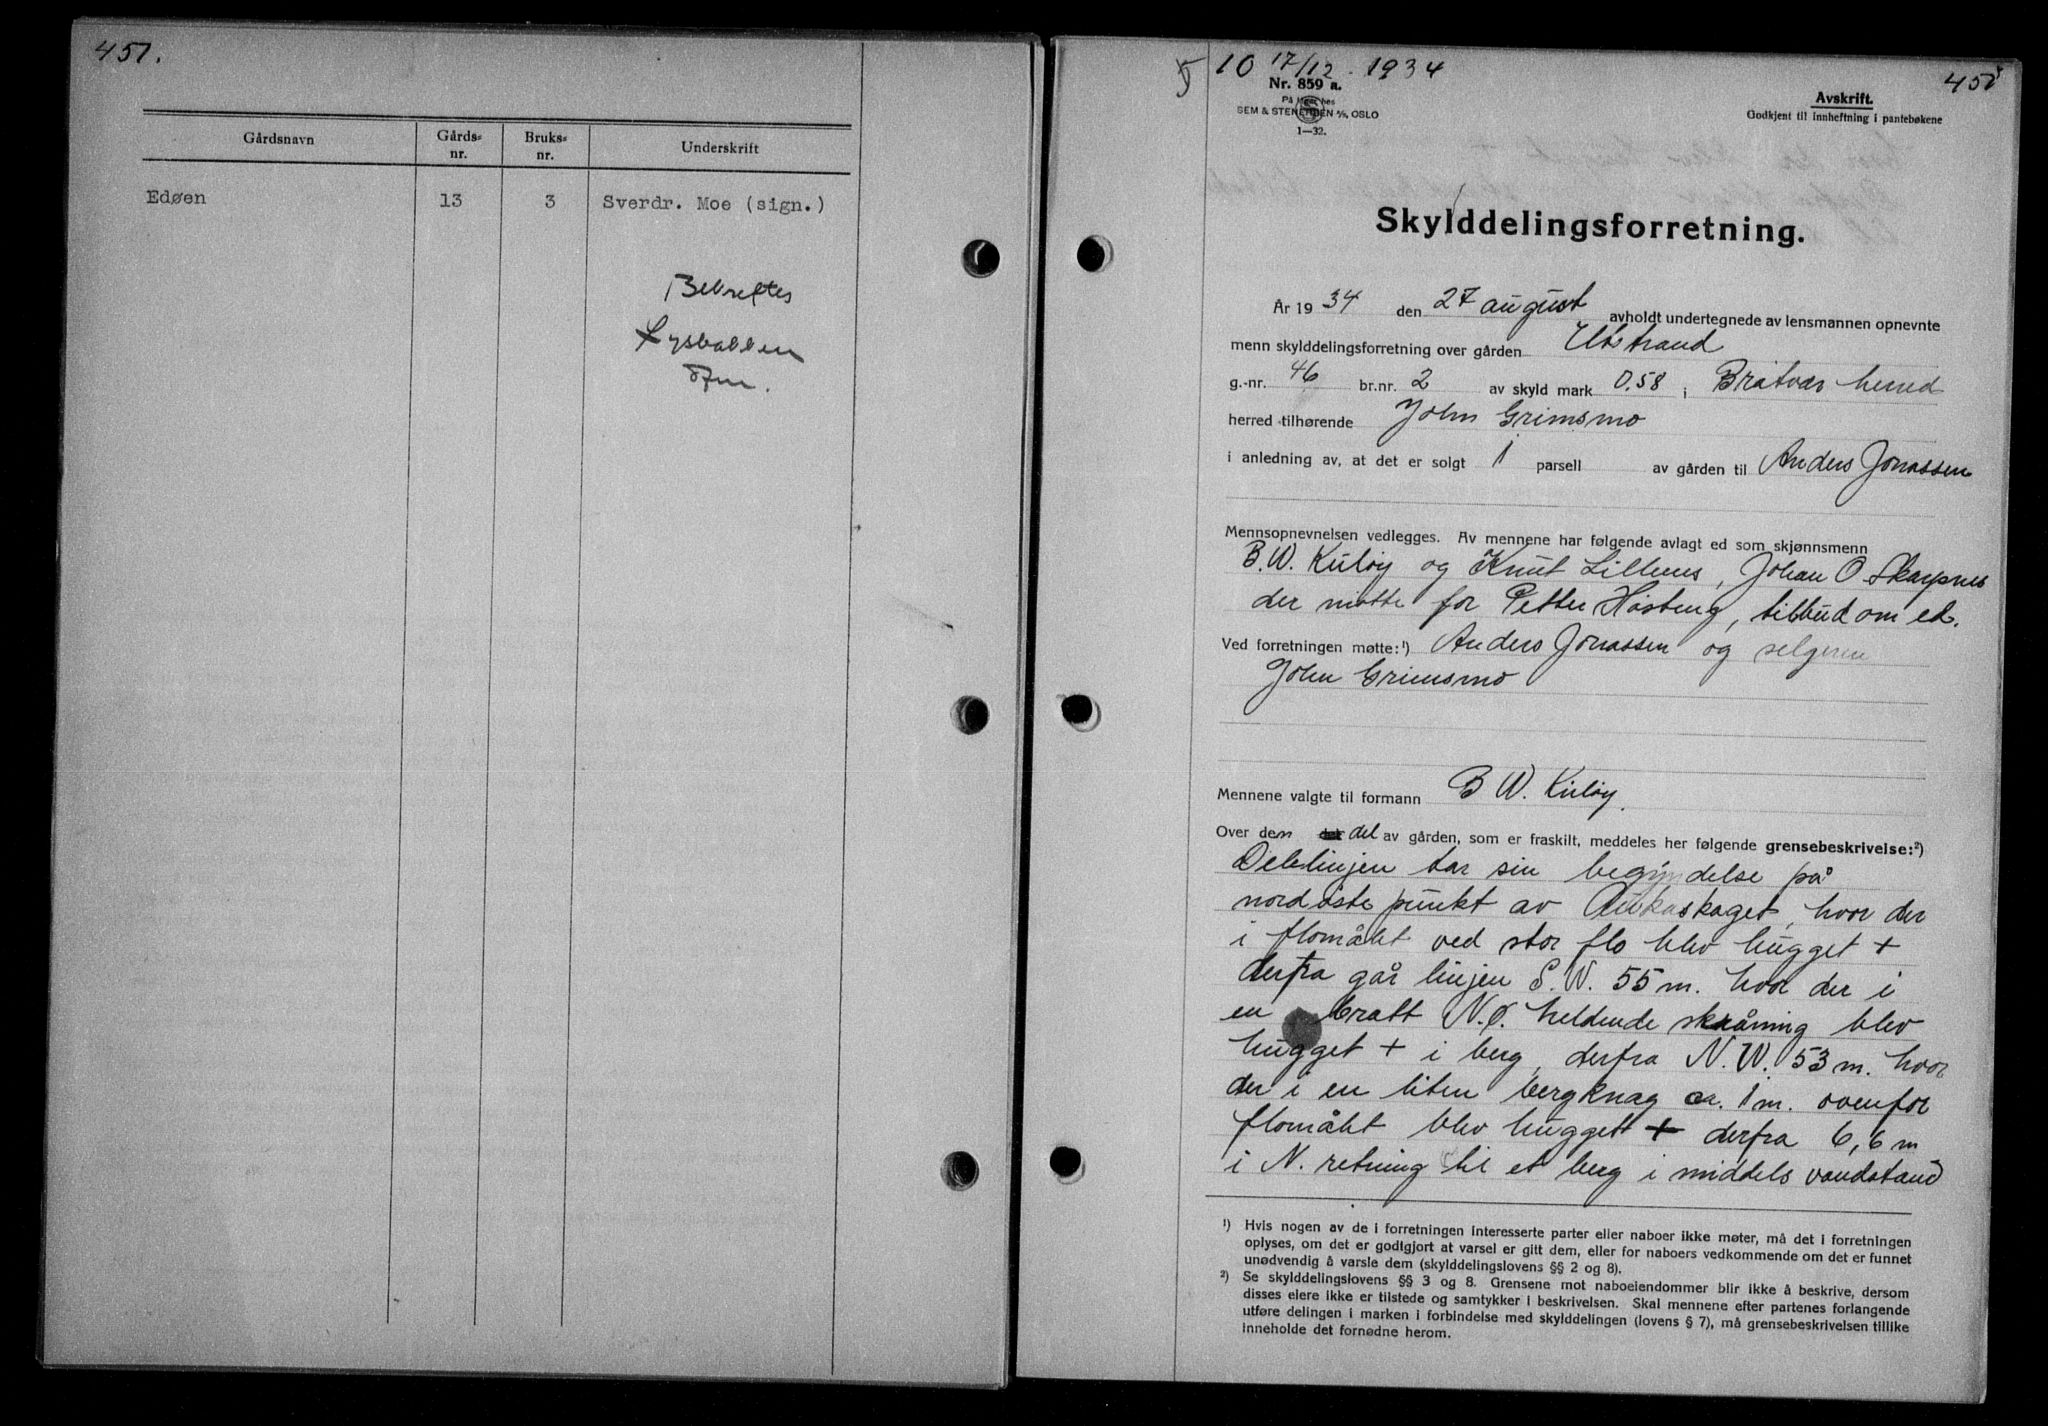 451.
Gårdsnavn Gårds- nr. Bruks- nr. Underskrift
Edøen 13 3 Sverdr. Moe (sign.)
Bekreftes
10 17/12 - 1934
451
Nr. 859 a.
På lager hos
SEM & STENERSEN A/S, OSLO
1—32.
Avskrift.
Godkjent til innheftning i pantebøkene
Skylddelingsforretning.
År 1934 den 27 august avholdt undertegnede av lensmannen opnevnte
menn skylddelingsforretning over gården
g.-nr. 46 br.nr. 2 av skyld mark 0.58 i Bratvær herred
herred tilhørende John Grimsmo
i anledning av, at det er solgt 1 parsell av gården til Anders Jonassen
Mennsopnevnelsen vedlegges. Av mennene har følgende avlagt ed som skjønnsmenn
B. W. Kuløy og Knut Lillenes, Johan O Skarpnes
der møtte for Petter Høsteng, tilbud om ed.
Ved forretningen møtte:¹) Anders Jonassen og selgeren
John Grimsmo
Mennene valgte til formann B W. Kuløy.
Over den del av gården, som er fraskilt, meddeles her følgende grensebeskrivelse:²)
Delelinjen tar sin begyndelse på
nordøste punkt av Aukaskaget, hvor der
i flomålet ved stor flo blev hugget +
derfra går linjen S.W. 55 m. hvor der i
en bratt N.Ø. heldende skråning blev
hugget + i berg, derfra N.W. 53 m. hvor
der i en liten bergknag ca. 1 m. ovenfor
flomålet blev hugget + derfra 6,6 m
i N. retning til et berg i middels vandstand
¹) Hvis nogen av de i forretningen interesserte parter eller naboer ikke møter, må det i forretningen
oplyses, om det er godtgjort at varsel er gitt dem, eller for naboers vedkommende om det er funnet
unødvendig å varsle dem (skylddelingslovens §§ 2 og 8).
²) Se skylddelingslovens §§ 3 og 8. Grensene mot naboeiendommer blir ikke å beskrive, dersom
disses eiere ikke er tilstede og samtykker i beskrivelsen. Skal mennene efter partenes forlangende
utføre delingen i marken i forbindelse med skylddelingen (lovens § 7), må grensebeskrivelsen tillike
inneholde det fornødne herom.